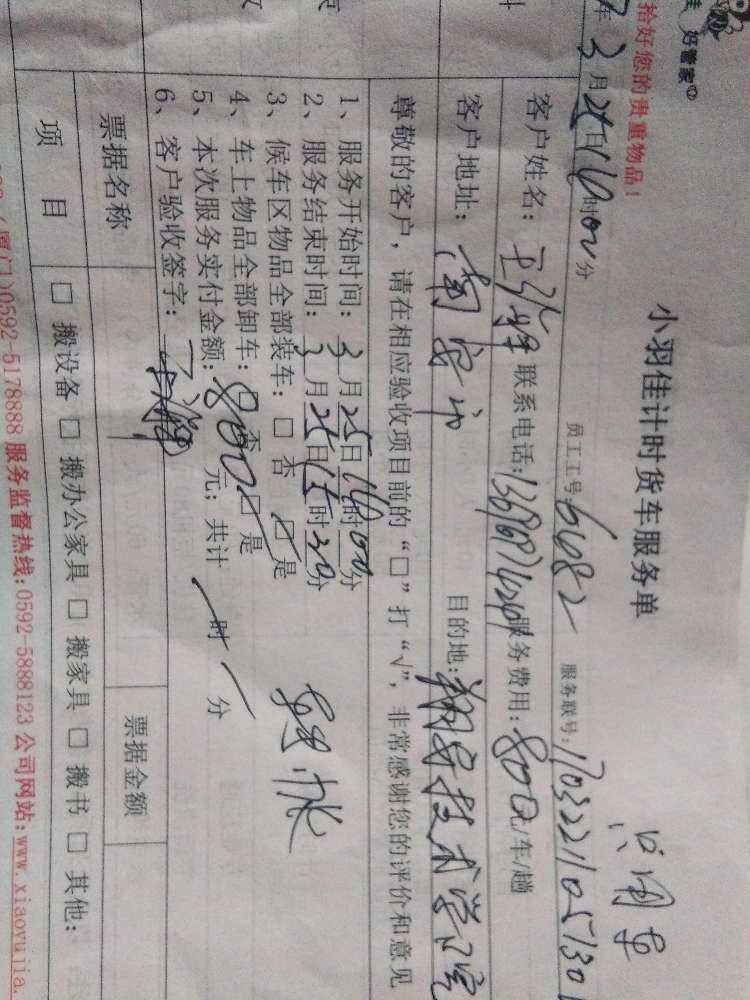 佳 好管家
拾好您的贵重物品!
小羽佳计时货车服务单
只用车
年3月25日14时00分
员工工号:6682 服务联号:1703221105130
客户姓名: 联系电话: 服务费用:800元/车/趟
客户地址:南安市 目的地:翔安技术学院
尊敬的客户,请在相应验收项目前的“□”打“√”,非常感谢您的评价和意见
1、服务开始时间:3月25日14时00分
2、服务结束时间:3月25日15时30分
3、候车区物品全部装车:□否 ☑是
4、车上物品全部卸车:□否 ☑是
5、本次服务实付金额:800元;共计 时 分
6、客户验收签字:
票据名称 票据金额
项目 □搬设备 □搬办公家具 □搬家具 □搬书 □其他:
(厦门)0592-5178888 服务监督热线:0592-5888123 公司网站:www.xiaoyujia.